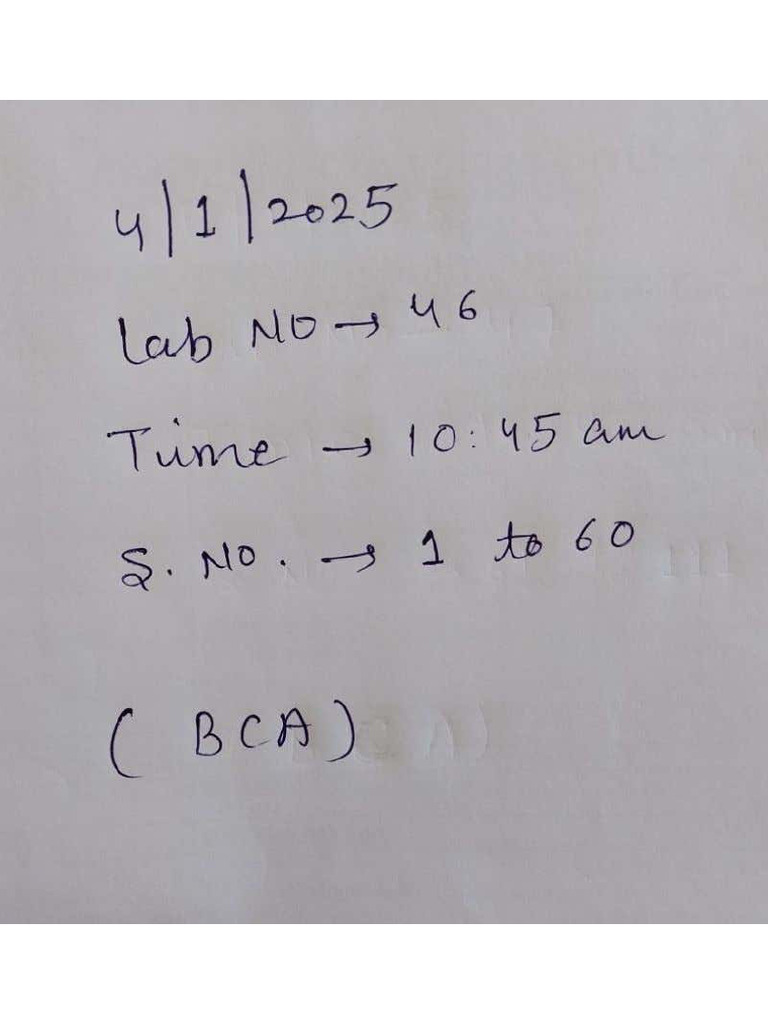 4/1/2025
Lab NO → 46
Time → 10:45 am
S. NO. → 1 to 60
(BCA)